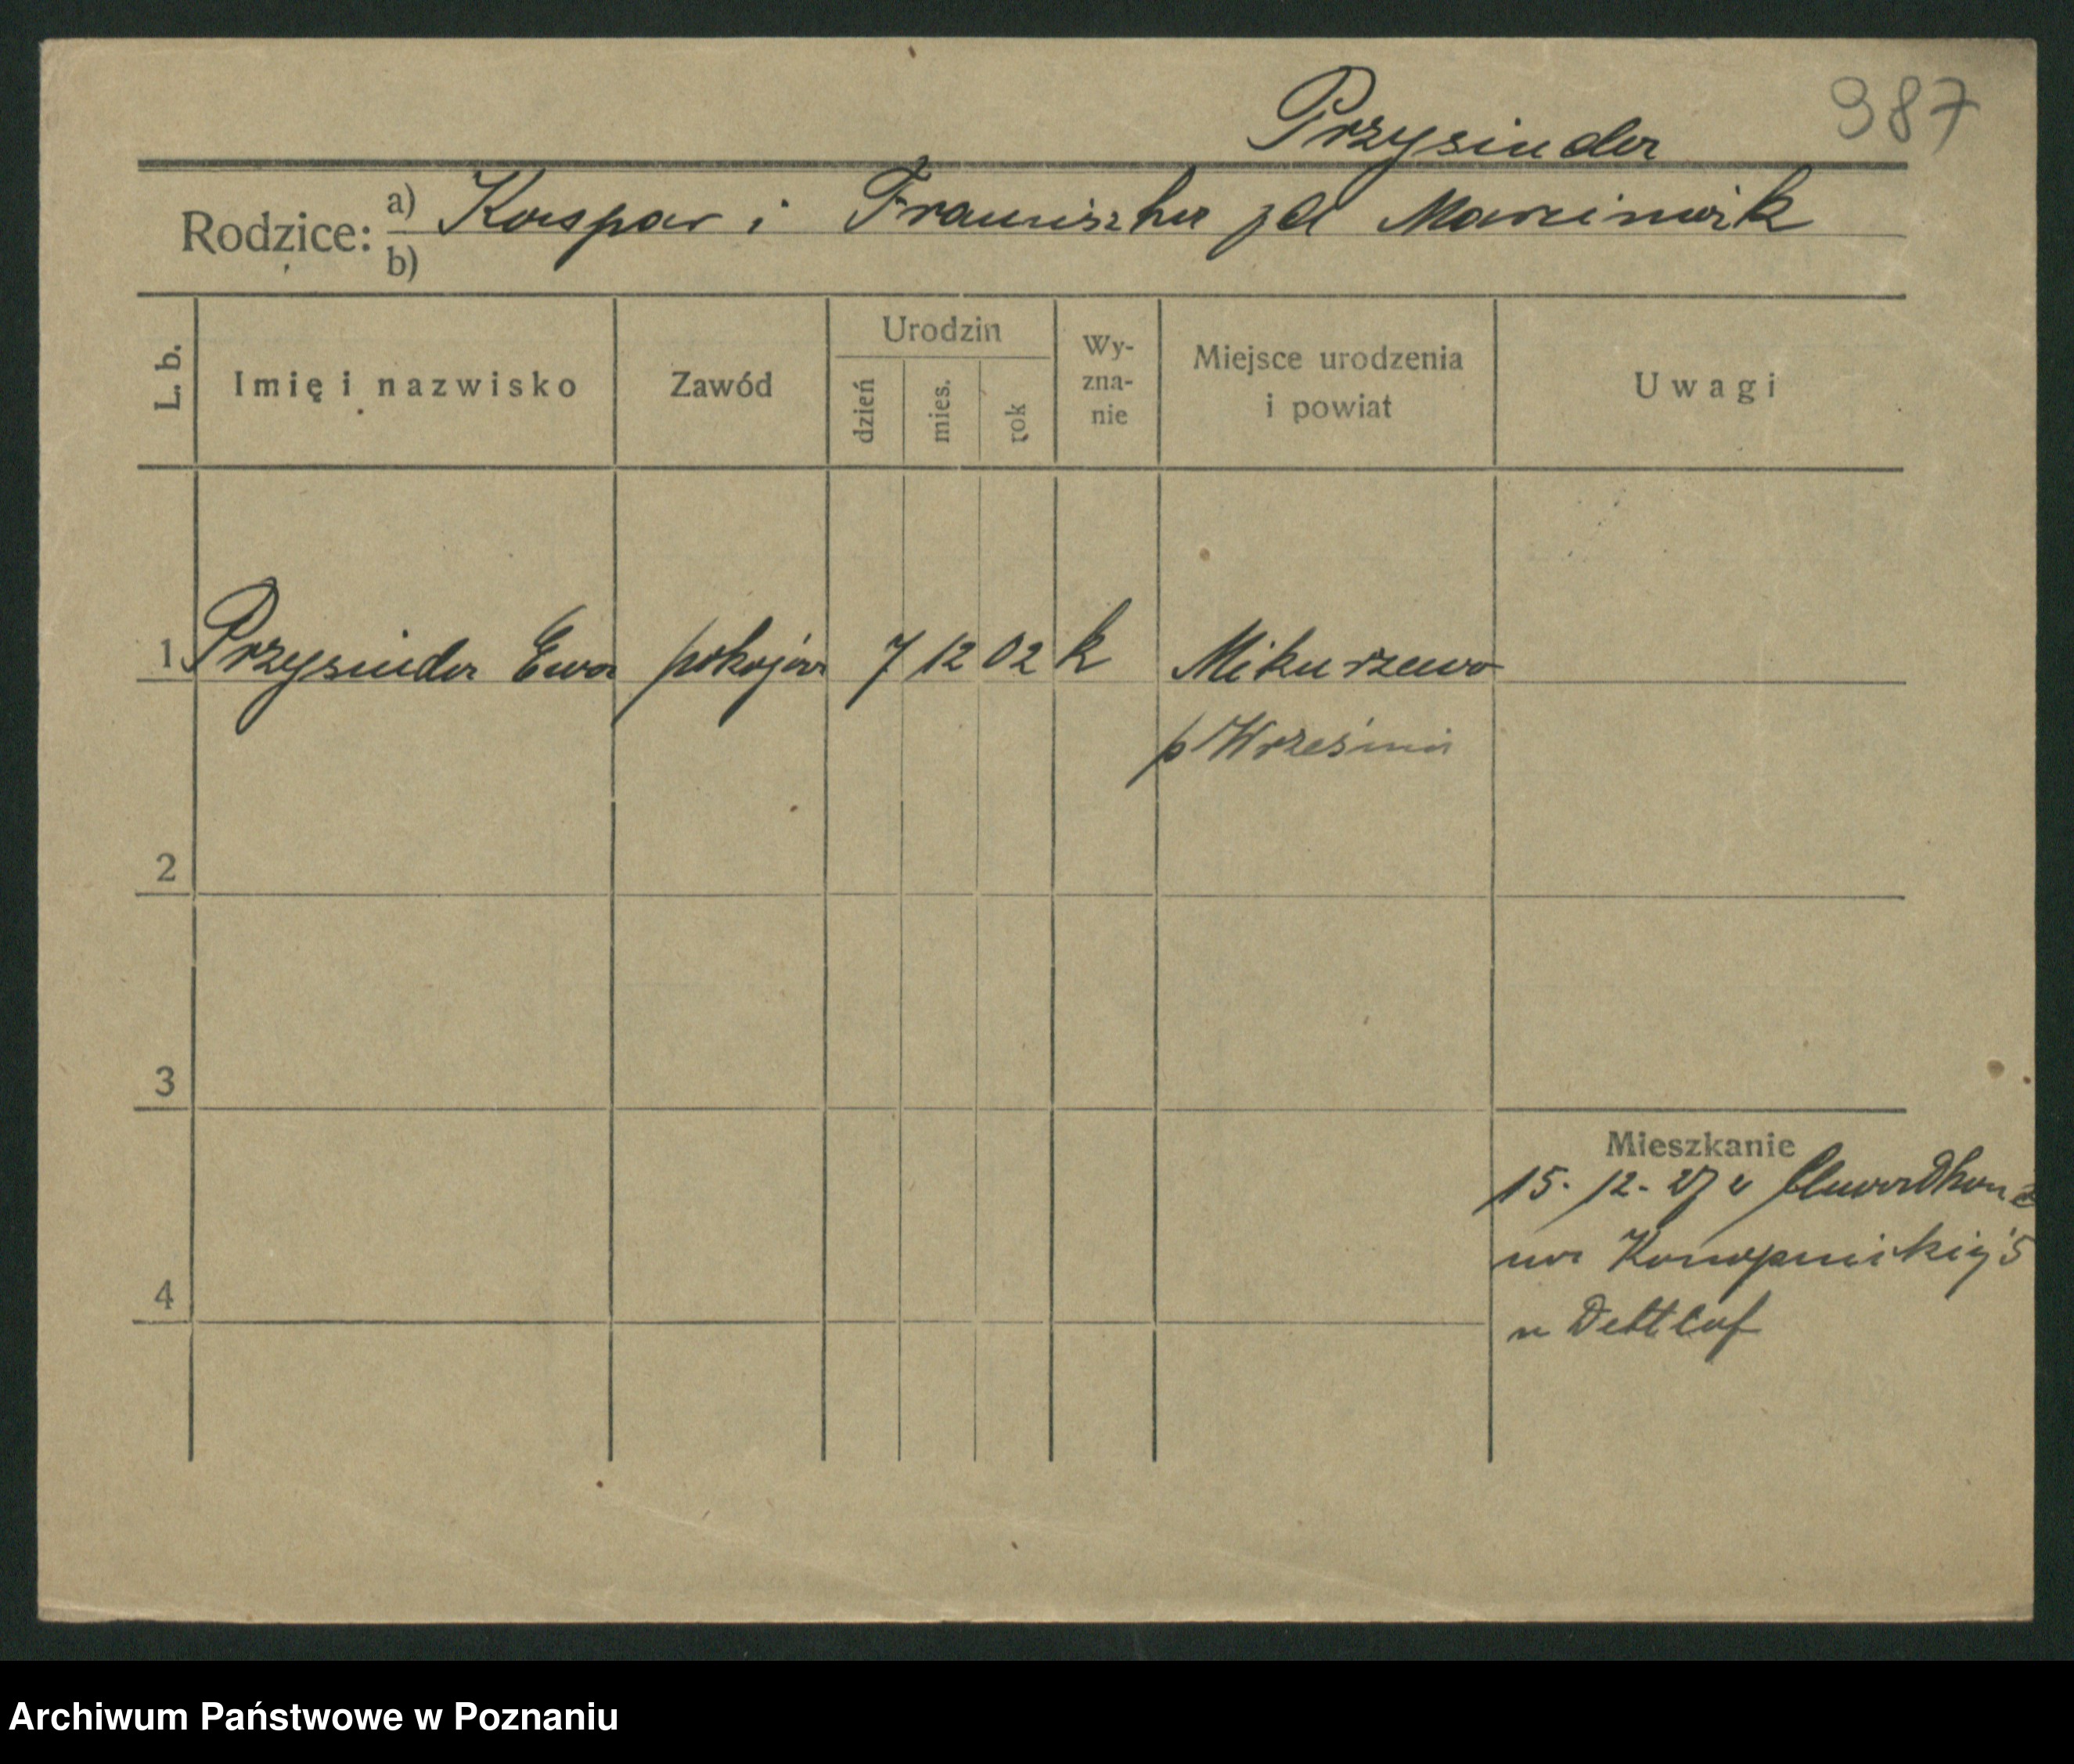 387
Przysinda
Rodzice: a) Kaspar i Franciszka zd Marciniak
b)
L. b.
Imię i nazwisko
Zawód
Urodzin
dzień
mies.
rok
Wy-
zna-
nie
Miejsce urodzenia
i powiat
Uwagi
1 Przysinda Ewa pokojów 7 12 02 k Mikuszewo
p Września
2
3
4
Mieszkanie
15. 12. 27 z
na Konopnickiej 5
u Dettlaf
Archiwum Państwowe w Poznaniu